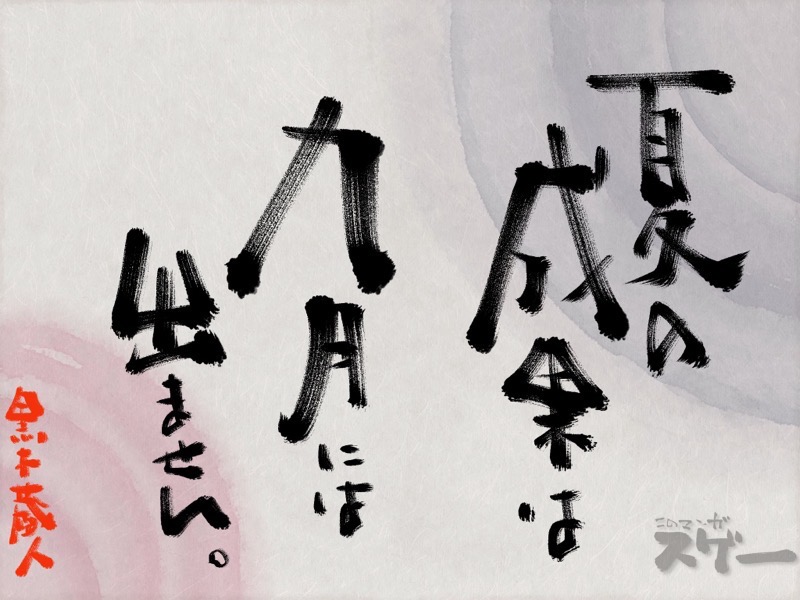 夏の
成果は
九月には
出ません。
黒木蔵人
このマンガ
スゲー